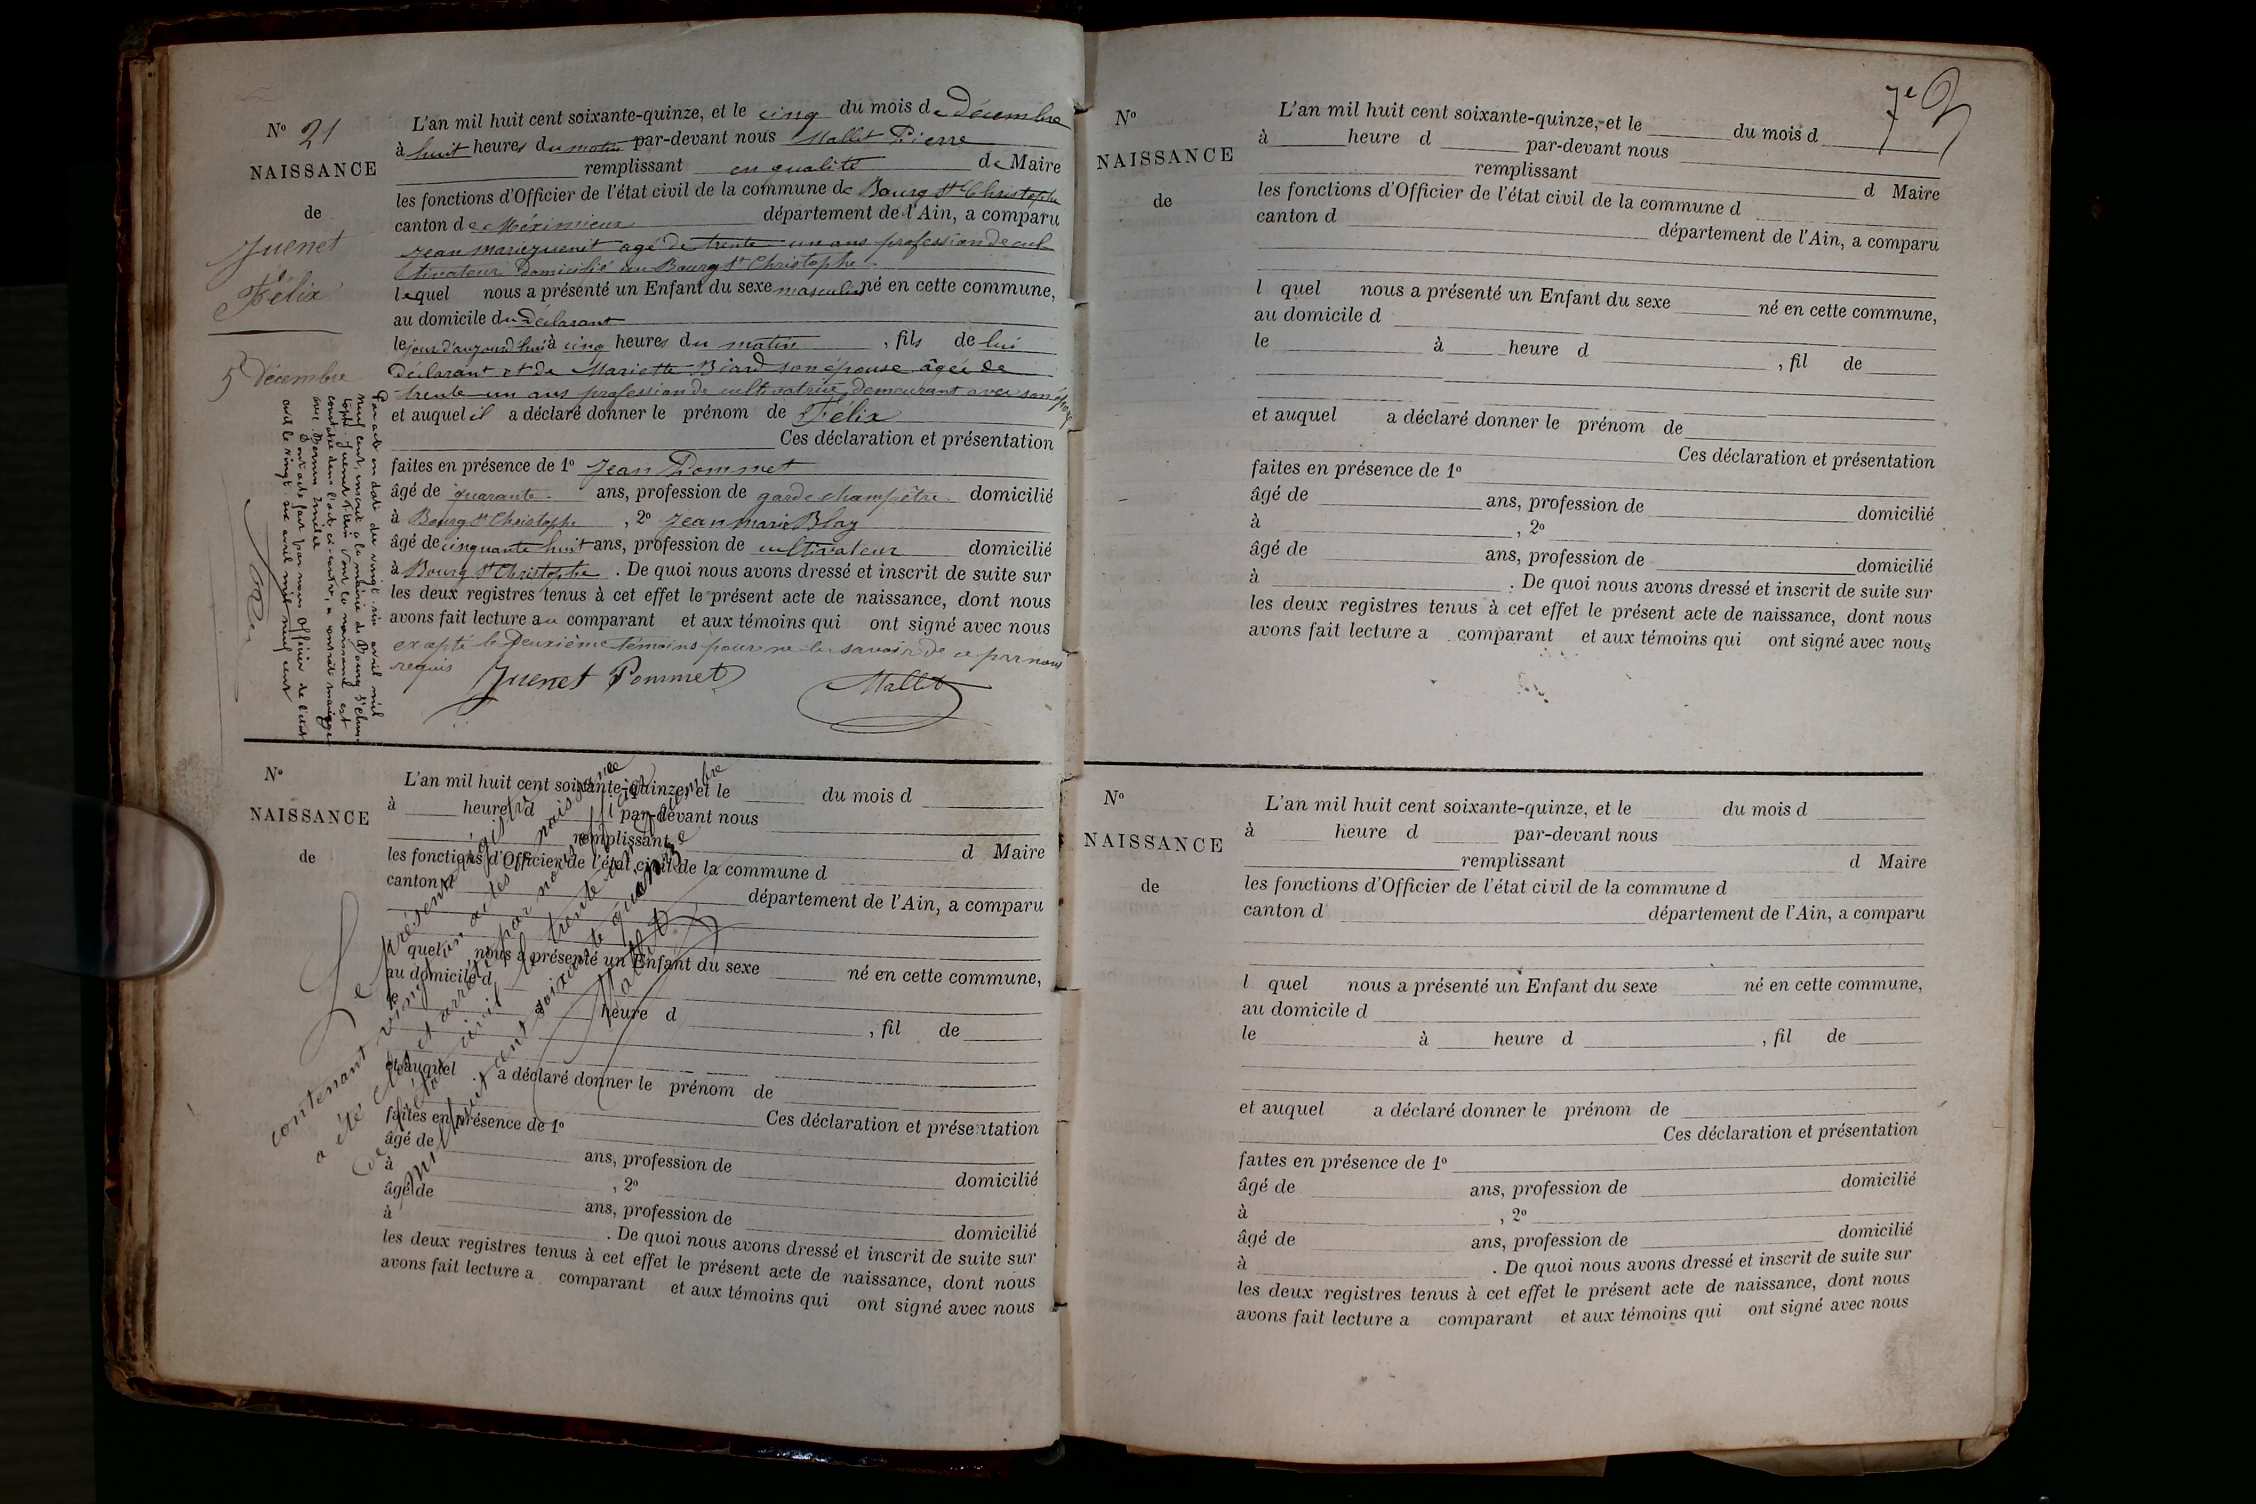 N° 21
NAISSANCE
de
Juenet
Félix
5 Décembre
L'an mil huit cent soixante-quinze, et le cinq du mois de Décembre
à huit heures du matin par-devant nous Mallet Pierre
remplissant en qualité de Maire
les fonctions d'Officier de l'état civil de la commune de Bourg St Christophe
canton de Méximieux département de l'Ain, a comparu
Jean Marie Juenet agé de trente un ans profession de cul
tivateur domicilié au Bourg St Christophe
lequel nous a présenté un Enfant du sexe masculin né en cette commune,
au domicile du Déclarant
le jour d'aujourd'hui à cinq heures du matin, fils de lui
déclarant et de Mariette Biard son épouse âgée de
trente un ans profession de cultivatrice demeurant avec son époux
et auquel il a déclaré donner le prénom de Félix
Ces déclaration et présentation
faites en présence de 1° Jean Pommet
âgé de quarante ans, profession de garde champêtre domicilié
à Bourg St Christophe, 2° Jean marie Blay
âgé de cinquante huit ans, profession de cultivateur domicilié
à Bourg St Christophe. De quoi nous avons dressé et inscrit de suite sur
les deux registres tenus à cet effet le présent acte de naissance, dont nous
avons fait lecture au comparant et aux témoins qui ont signé avec nous
excepté le Deuxième témoins pour ne le savoir de ce par nous
requis
Juenet Pommet Mallet
Par acte en date du vingt six avril mil
neuf cent, inscrit à la mairie de Bourg St Chris-
tophe Juenet Félix dont la naissance est
constatée dans l'acte ci-contre, a contracté mariage
avec
dont acte fait par nous officier de l'état
civil le vingt six avril mil neuf cent
N°
NAISSANCE
de
L'an mil huit cent soixante-quinze, et le du mois d
à heure d par-devant nous
remplissant d Maire
les fonctions d'Officier de l'état civil de la commune d
canton d département de l'Ain, a comparu
l quel nous a présenté un Enfant du sexe né en cette commune,
au domicile d
le à heure d, fil de
et auquel a déclaré donner le prénom de
Ces déclaration et présentation
faites en présence de 1°
âgé de ans, profession de domicilié
à, 2°
âgé de ans, profession de domicilié
à. De quoi nous avons dressé et inscrit de suite sur
les deux registres tenus à cet effet le présent acte de naissance, dont nous
avons fait lecture a comparant et aux témoins qui ont signé avec nous
Le présent régistre
contenant vingt un actes de naissance
a été clos et arrêté par nous officier
de l'état civil le trente un décembre
mil huit cent soixante quinze
Mallet
7e
N°
NAISSANCE
de
L'an mil huit cent soixante-quinze, et le du mois d
à heure d par-devant nous
remplissant d Maire
les fonctions d'Officier de l'état civil de la commune d
canton d département de l'Ain, a comparu
l quel nous a présenté un Enfant du sexe né en cette commune,
au domicile d
le à heure d, fil de
et auquel a déclaré donner le prénom de
Ces déclaration et présentation
faites en présence de 1°
âgé de ans, profession de domicilié
à, 2°
âgé de ans, profession de domicilié
à. De quoi nous avons dressé et inscrit de suite sur
les deux registres tenus à cet effet le présent acte de naissance, dont nous
avons fait lecture a comparant et aux témoins qui ont signé avec nous
N°
NAISSANCE
de
L'an mil huit cent soixante-quinze, et le du mois d
à heure d par-devant nous
remplissant d Maire
les fonctions d'Officier de l'état civil de la commune d
canton d département de l'Ain, a comparu
l quel nous a présenté un Enfant du sexe né en cette commune,
au domicile d
le à heure d, fil de
et auquel a déclaré donner le prénom de
Ces déclaration et présentation
faites en présence de 1°
âgé de ans, profession de domicilié
à, 2°
âgé de ans, profession de domicilié
à. De quoi nous avons dressé et inscrit de suite sur
les deux registres tenus à cet effet le présent acte de naissance, dont nous
avons fait lecture a comparant et aux témoins qui ont signé avec nous